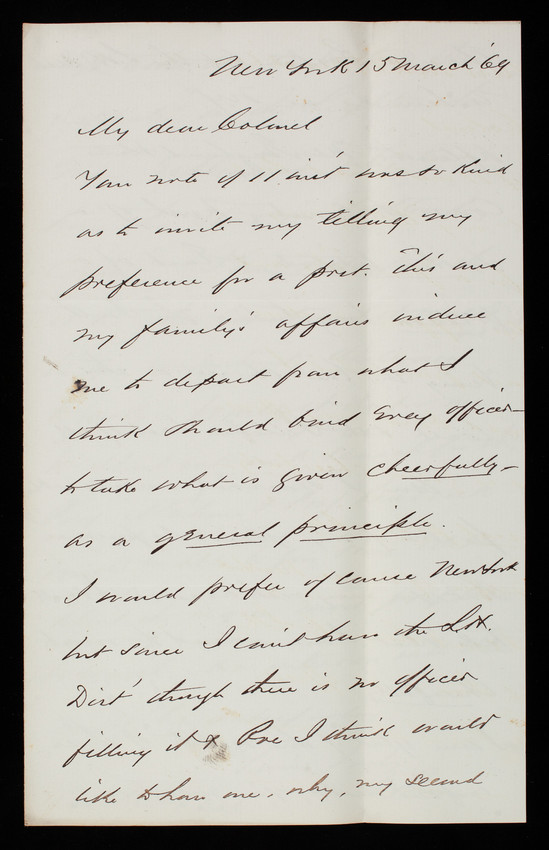 New York 15 March '69
My dear Colonel
Your note of 11 inst was so kind
as to invite my telling my
preference for a post. This and
my family's affairs induce
me to depart from what I
think should bind every officer—
to take what is given cheerfully—
as a general principle.
I would prefer of course New York
but since I can't have the L.H.
Dist' though there is no officer
filling it & Poe I think would
like to have me, why, my second